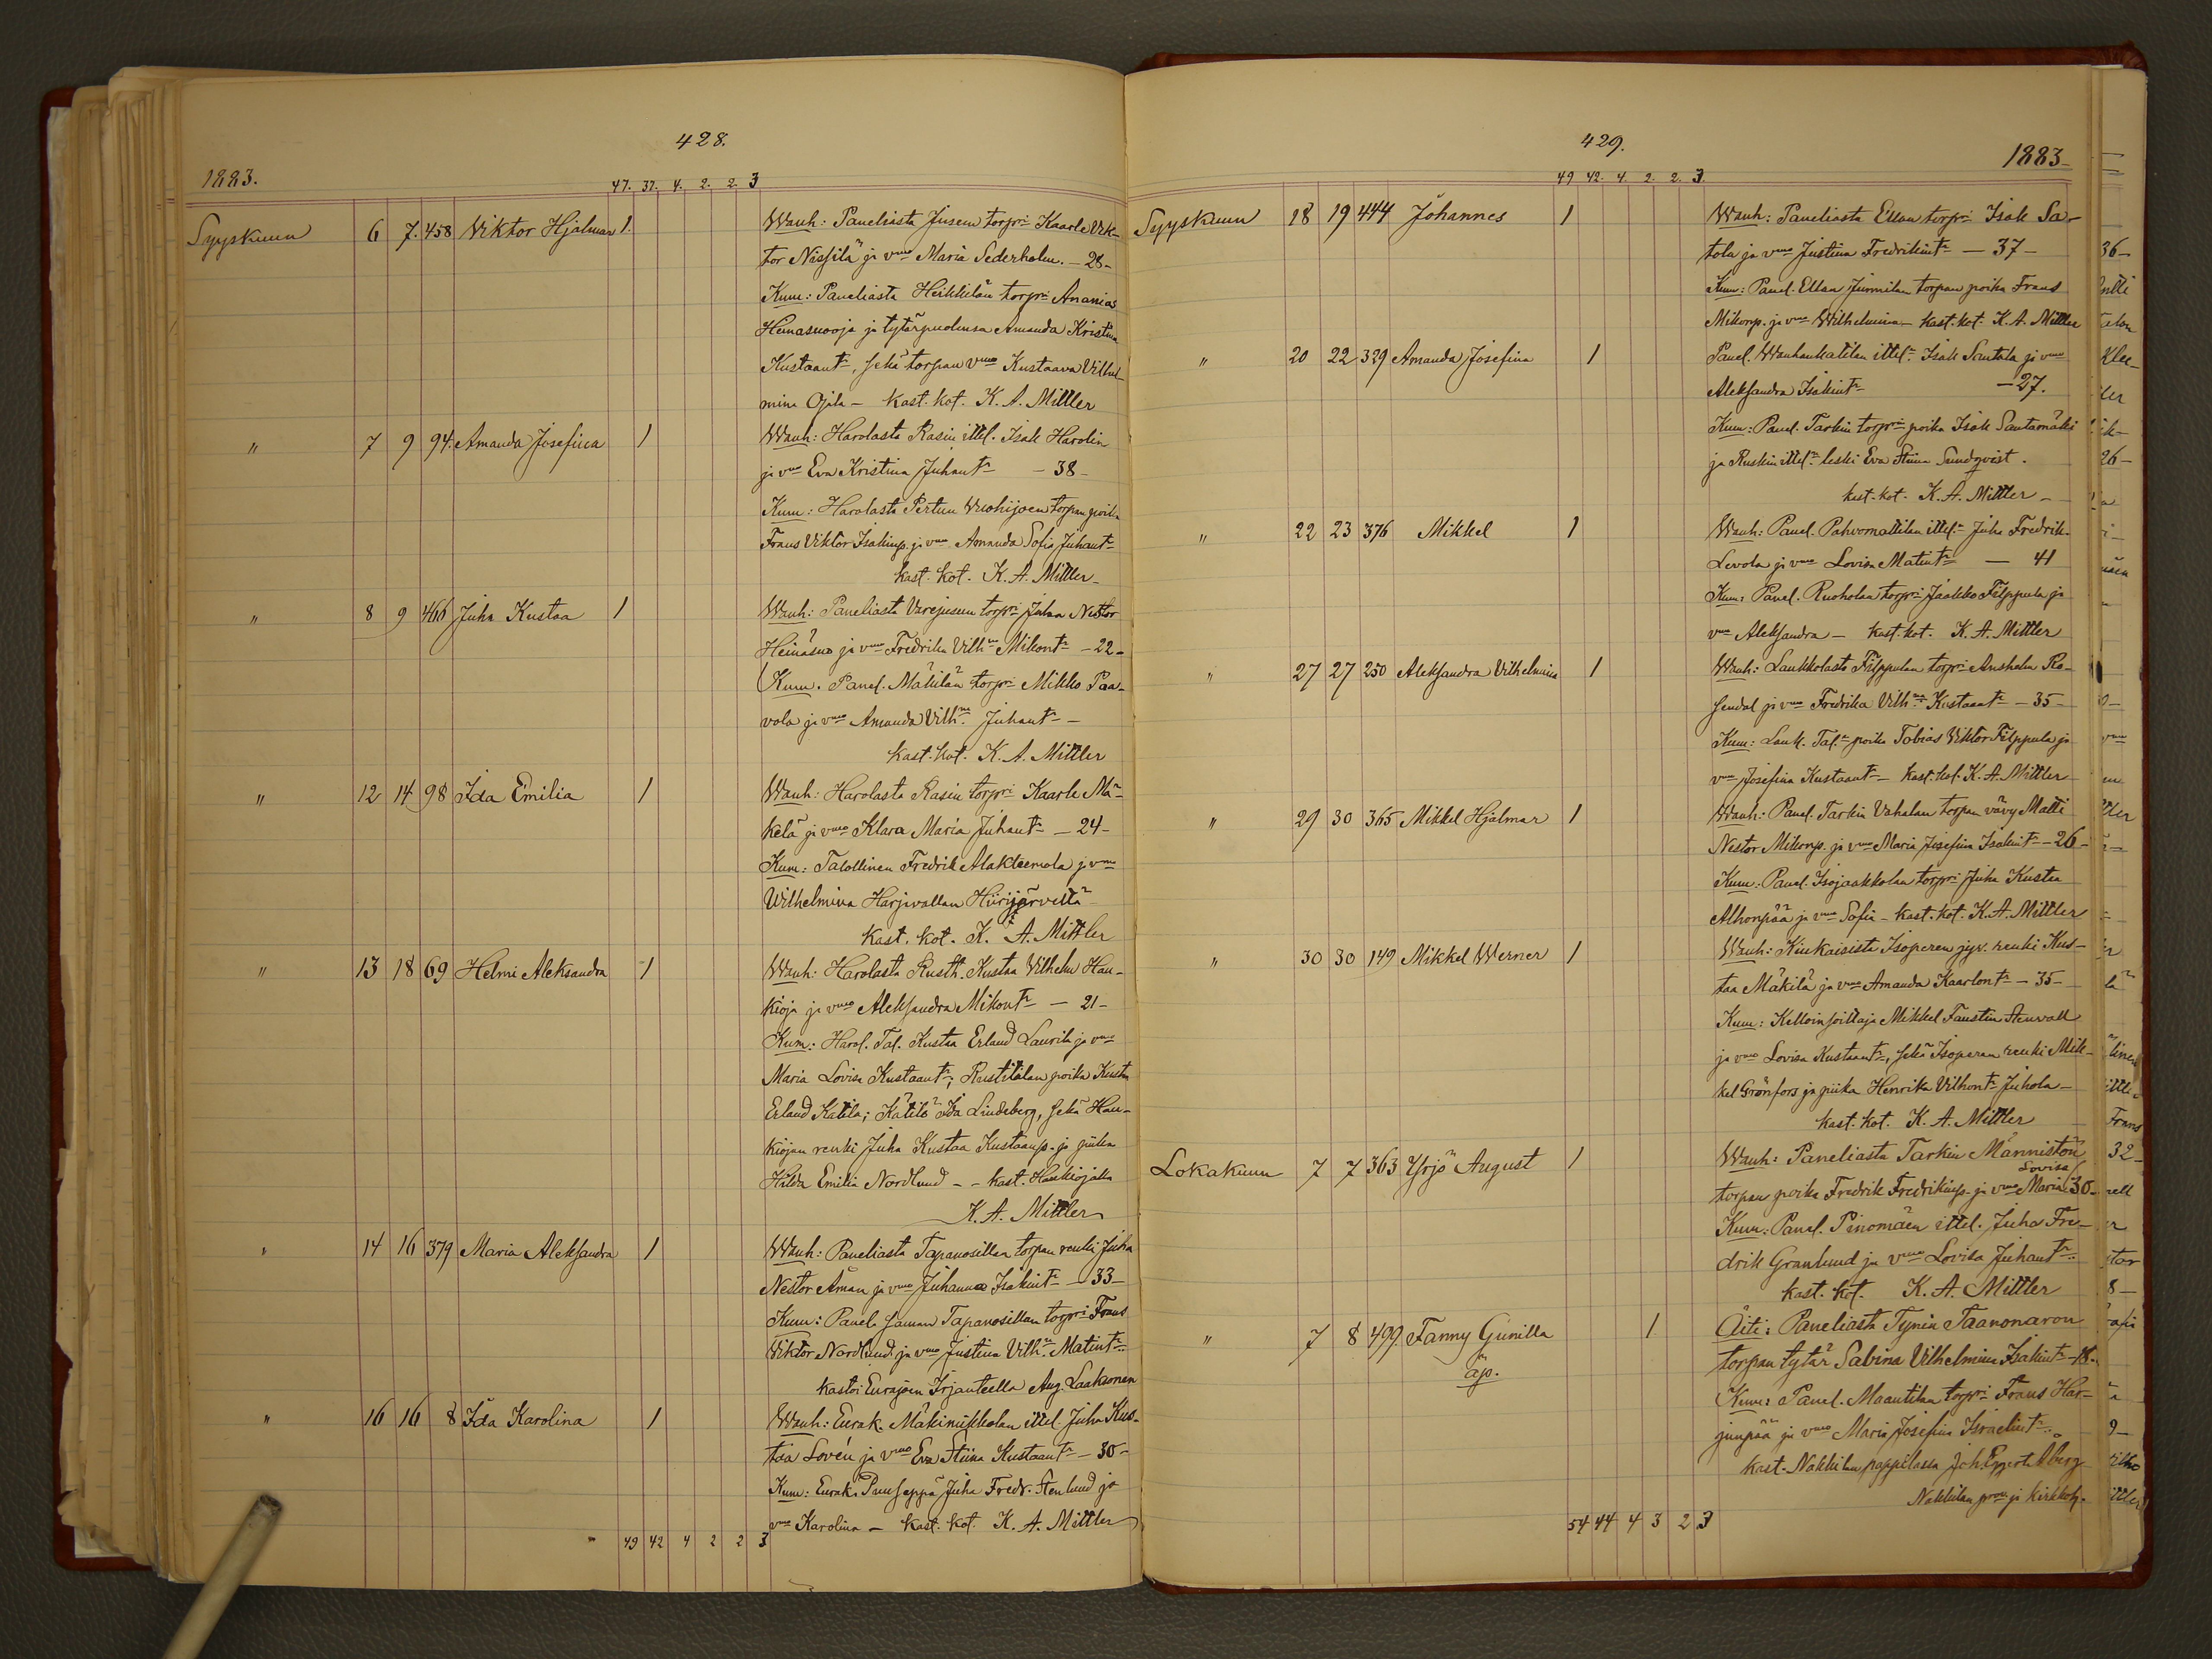 428.
1883.
47. 37. 4. 2. 2. 3
Syyskuun 6 7. 458 Viktor Hjalmar 1. Wanh: Paneliasta Jusen torpri Kaarle Vik-
tor Nissilä ja vmo Maria Sederholm. - 28 -
Kum: Paneliasta Heikkilän torpri Ananias
Heinäsuoja ja tytärpuolensa Amanda Kristina
Kustaantr, sekä torpan vmo Kustaava Vilhel-
mina Ojala - kast. kot. K. A. Mittler
" 7 9 94. Amanda Josefina 1 Wanh: Harolasta Rasin ittel. Isak Harolin
ja vmo Eva Kristina Juhantr - 38 -
Kum: Harolasta Pertun Wuohijoen torpan poika
Frans Viktor Isakinp. ja vmo Amanda Sofia Juhantr
kast. kot. K. A. Mittler -
" 8 9 466 Juha Kustaa 1 Wanh: Paneliasta Varejusen torpri Juhan Nestor
Heinäsuo ja vmo Fredrika Vilhna Mikontr - 22 -
Kum. Panel. Mäkilän torpri Mikko Paa-
vola ja vmo Amanda Vilhna Juhantr -
kast. kot. K. A. Mittler
" 12 14 98 Ida Emilia 1 Wanh: Harolasta Rasin torpri Kaarle Mä-
kelä ja vmo Klara Maria Juhantr - 24 -
Kum: Talollinen Fredrik Alakleemola ja vmo
Wilhelmina Harjavallan Hiirijärveltä
kast. kot. K. A. Mittler
" 13 18 69 Helmi Aleksandra 1 Wanh: Harolasta Rusth. Kustaa Vilhelm Hau-
kioja ja vmo Aleksandra Mikontr - 21 -
Kum: Harol. Tal. Kustaa Erland Laurila ja vmo
Maria Lovisa Kustaantr; Rustitilan poika Kustaa
Erland Katila; Kätilö Ida Lindeberg, sekä Hau-
kiojan renki Juha Kustaa Kustaanp. ja piika
Hilda Emilia Nordlund - - kast. Haukiojalla
K. A. Mittler
" 14 16 379 Maria Aleksandra 1 Wanh: Paneliasta Tapanosillan torpan renki Juha
Nestor Åman ja vmo Juhanna Isakintr - 33 -
Kum: Panel. saman Tapanosillan torpri Frans
Viktor Nordlund ja vmo Justina Vilhna Matintr.
kastoi Eurajoen Irjanteella Aug. Laaksonen
" 16 16 8 Ida Karolina 1 Wanh: Eurak. Mäkinikkolan ittel. Juha Kus-
taa Lovén ja vmo Eva Stiina Kustaantr - 30 -
Kum: Eurak. Puuseppä Juha Fredr. Stenlund ja
vmo Karolina - kast. kot. K. A. Mittler
49 42 4 2 2 3
429.
1883
49 42. 4. 2. 2. 3.
Syyskuun 18 19 444 Johannes 1 Wanh: Paneliasta Ellan torpri Isak Sa-
tola ja vmo Justina Fredrikintr - 37 -
Kum: Panel. Ellan Junnilan torpan poika Frans
Mikonp. ja vmo Wilhelmina - kast. kot. K. A. Mittler
" 20 22 329 Amanda Josefina 1 Panel. Wanhankatilan ittel. Isak Santala ja vmo
Aleksandra Isakintr - 27.
Kum: Panel. Tarkin torpri poika Isak Santamäki
ja Ruskin ittel. leski Eva Stiina Sundqvist.
kast. kot. K. A. Mittler -
" 22 23 376 Mikkel 1 Wanh: Panel. Pahvomattilan ittel. Juha Fredrik
Levola ja vmo Lovisa Matintr - 41
Kum: Panel. Ruoholan torpri Jaakko Filppula ja
vmo Aleksandra - kast. kot. K. A. Mittler
" 27 27 250 Aleksandra Vilhelmina 1 Wanh: Laukkolasta Filppulan torpri Anshelm Ro-
sendal ja vmo Fredrika Vilhna Kustaantr - 35 -
Kum: Lauk. Tal. poika Tobias Viktor Filppula ja
vmo Josefina Kustaantr - kast. kot. K. A. Mittler
" 29 30 365 Mikkel Hjalmar 1 Wanh: Panel. Tarkin Vahalan torpan vävy Matti
Nestor Mikonp. ja vmo Maria Josefina Isakintr - 26 -
Kum: Panel. Isojaakkolan torpri Juha Kustaa
Alhonpää ja vmo Sofia - kast. kot. K. A. Mittler
" 30 30 149 Mikkel Werner 1 Wanh: Kiukaisista Isoperen renki Kus-
taa Mäkilä ja vmo Amanda Kaarlontr - 35 -
Kum: Kelloinsoittaja Mikkel Faustin Stenvall
ja vmo Lovisa Kustaantr, sekä Isoperen renki Mik-
kel Grönfors ja piika Henrika Vilhontr Juhola -
kast. kot. K. A. Mittler
Lokakuun 7 7 363 Yrjö August 1 Wanh: Paneliasta Tarkin Männistön
torpan poika Fredrik Fredrikinp. ja vmo Maria Lovisa 30 -
Kum: Panel. Pinomäen ittel. Juha Fre-
drik Granlund ja vmo Lovisa Juhantr.
kast. kot. K. A. Mittler
" 7 8 499. Fanny Gunilla 1 Äiti: Paneliasta Tynin Taanonaron
äp. torpan tytär Sabina Vilhelmina Isakintr - 18 -
Kum: Panel. Maantilan torpri Frans Har-
junpää ja vmo Maria Josefina Israelintr.
kast. Nakkilan pappilassa Joh. Eggert Åberg
Nakkilan prov. ja kirkkoh.
54 44 4 3 2 3